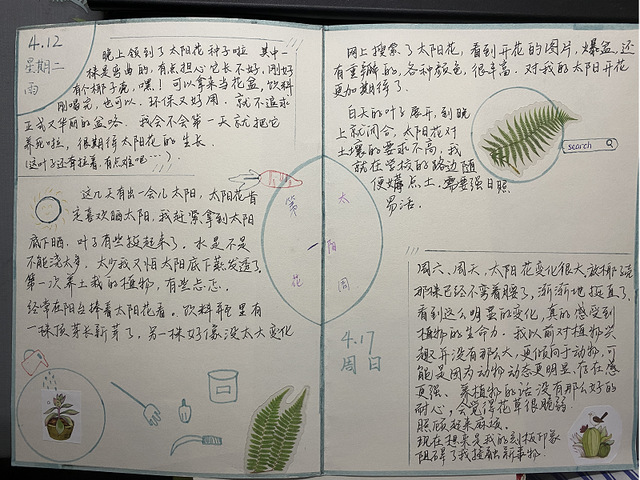 4.12
星期二
雨
晚上领到了太阳花种子啦 其中一
株是弯曲的,有点担心它长不好,刚好
有个椰子壳,嘿!可以拿来当花盆,饮料
刚喝完,也可以,环保又好用,就不追求
正式又华丽的盆咯。我会不会第一天就把它
养死啦,很期待太阳花的生长
(这叶子还有挂着,有点难吧~~~)
这几天有出一会儿太阳,太阳花肯
定喜欢晒太阳,我赶紧拿到太阳
底下晒,叶子有些挺起来了。水是不是
不能浇太多,太少我又怕太阳底下蒸发透了
第一次养土栽的植物,有些忐忑。
经常在阳台捧着太阳花看。饮料瓶里有
一株顶芽长新芽了,另一株好像没太大变化
第一
太阳
花
周
网上搜索了太阳花,看到开花的图片,爆盆,还
有重瓣的,各种颜色,很丰富。对我的太阳开花
更加期待了。
白天的叶子展开,到晚
上就闭合,太阳花对
土壤的要求不高,我
就在学校的路边随
便薅点土,需要强日照
易活。
search
4.17
周日
周六、周天,太阳花变化很大,放椰子壳
那株已经不弯着腰了,渐渐地挺直了,
看到这么明显的变化,真的感受到
植物的生命力。我以前对植物兴
趣并没有那么大,更倾向于动物,可
能是因为动物动态更明显,存在感
更强、养植物的话没有那么好的
耐心,会觉得花草很脆弱
照顾起来麻烦。
现在想来是我的刻板印象
阻碍了我接触新事物。